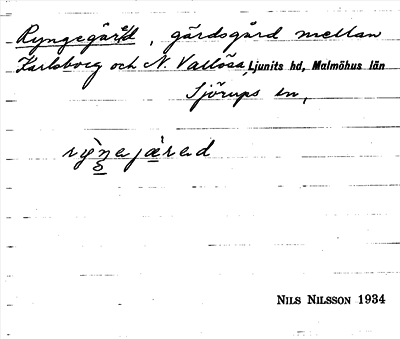 Ryngegärd, gärdsgård mellan
Karlsborg och N. Vallösa, Ljunits hd, Malmöhus län
Sjörups sn,
NILS NILSSON 1934